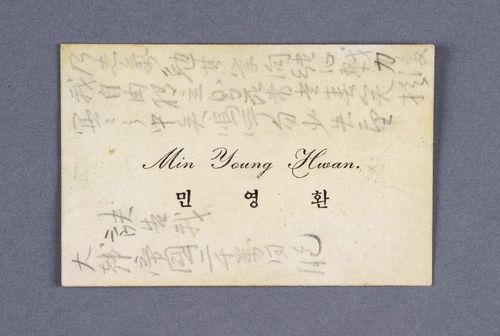 乃志氣勉其學問結心戮力復
我自由獨立則死者當喜笑於
冥冥之中矣嗚呼勿少失望
Min Young Hwan.
민 영 환
訣告我
大韓帝國二千萬同胞